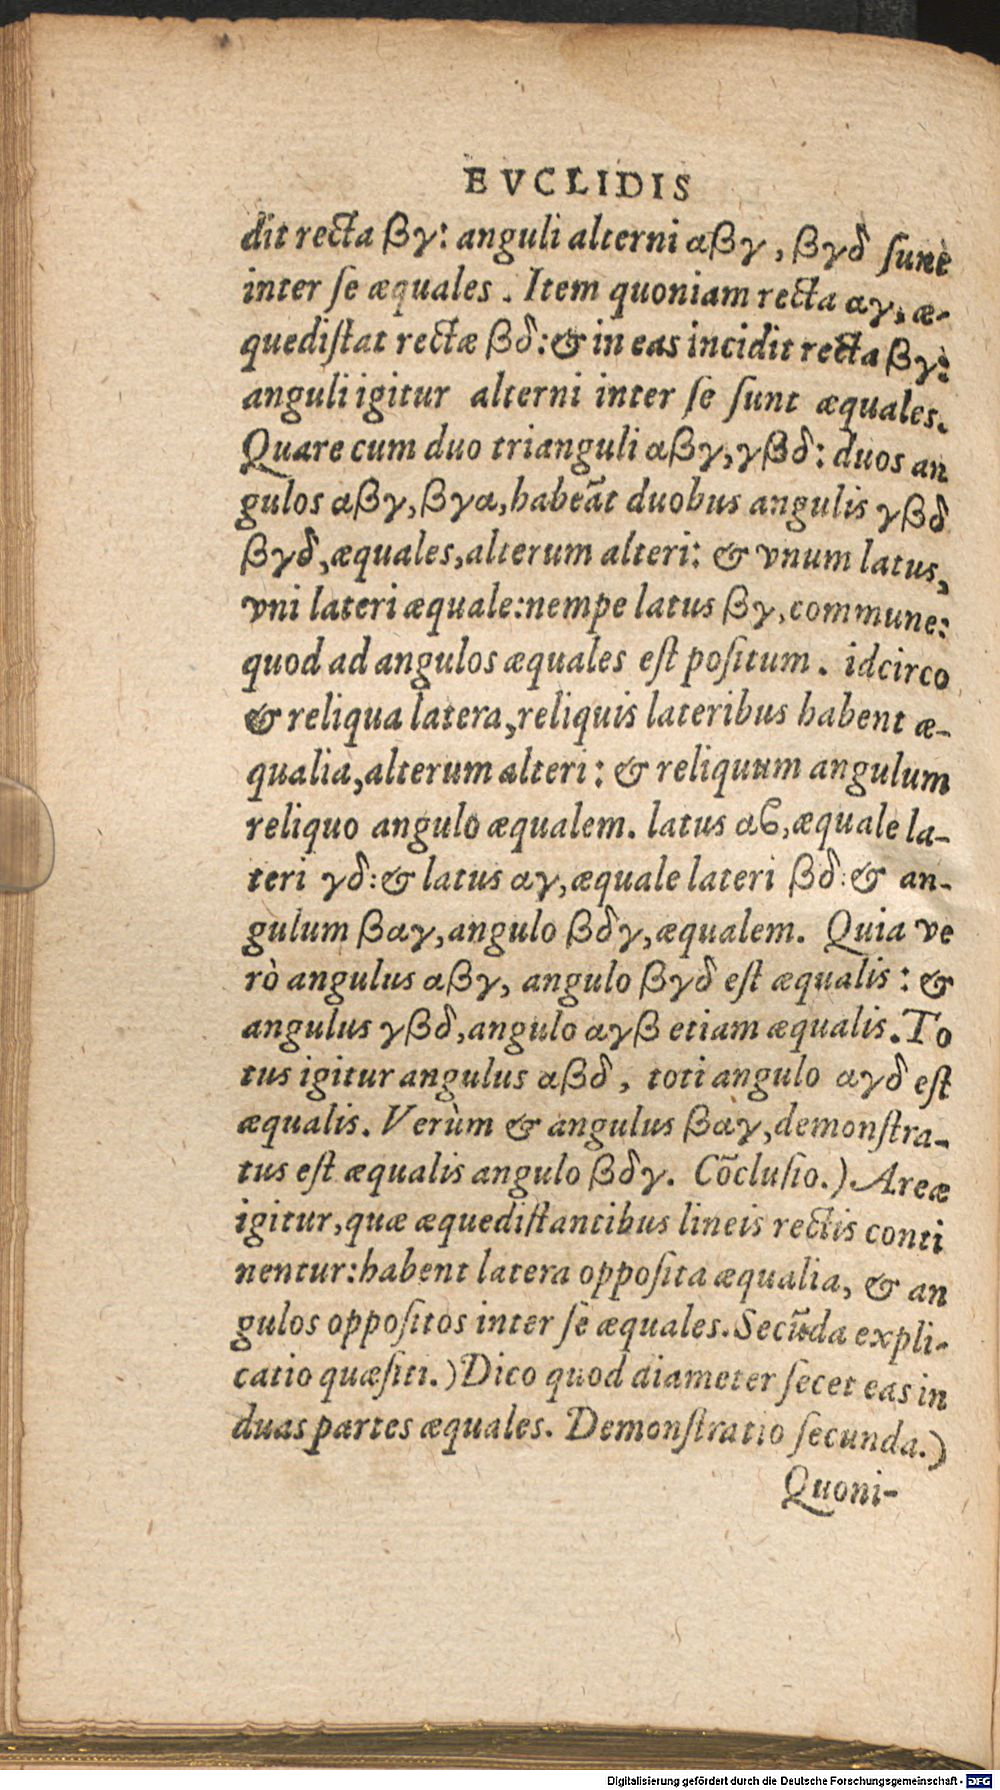 EVCLIDIS
dit recta βγ: anguli alterni αβγ, βγδ sunt
inter se æquales. Item quoniam recta αγ, æ-
quedistat rectæ βδ: & in eas incidit recta βγ:
anguli igitur alterni inter se sunt æquales.
Quare cum duo trianguli αβγ, γβδ: duos an
gulos αβγ, βγα, habeāt duobus angulis γβδ
βγδ, æquales, alterum alteri: & vnum latus,
vni lateri æquale: nempe latus βγ, commune:
quod ad angulos æquales est positum. idcirco
& reliqua latera, reliquis lateribus habent æ-
qualia, alterum alteri: & reliquum angulum
reliquo angulo æqualem. latus αϐ, æquale la-
teri γδ: & latus αγ, æquale lateri βδ: & an-
gulum βαγ, angulo βδγ, æqualem. Quia ve
rò angulus αβγ, angulo βγδ est æqualis: &
angulus γβδ, angulo αγβ etiam æqualis. To
tus igitur angulus αβδ, toti angulo αγδ est
æqualis. Verùm & angulus βαγ, demonstra-
tus est æqualis angulo βδγ. Cōclusio.) Areæ
igitur, quæ æquedistantibus lineis rectis conti
nentur: habent latera opposita æqualia, & an
gulos oppositos inter se æquales. Secūda expli-
catio quæsiti.) Dico quod diameter secet eas in
duas partes æquales. Demonstratio secunda.)
Quoni-
Digitalisierung gefördert durch die Deutsche Forschungsgemeinschaft - DFG